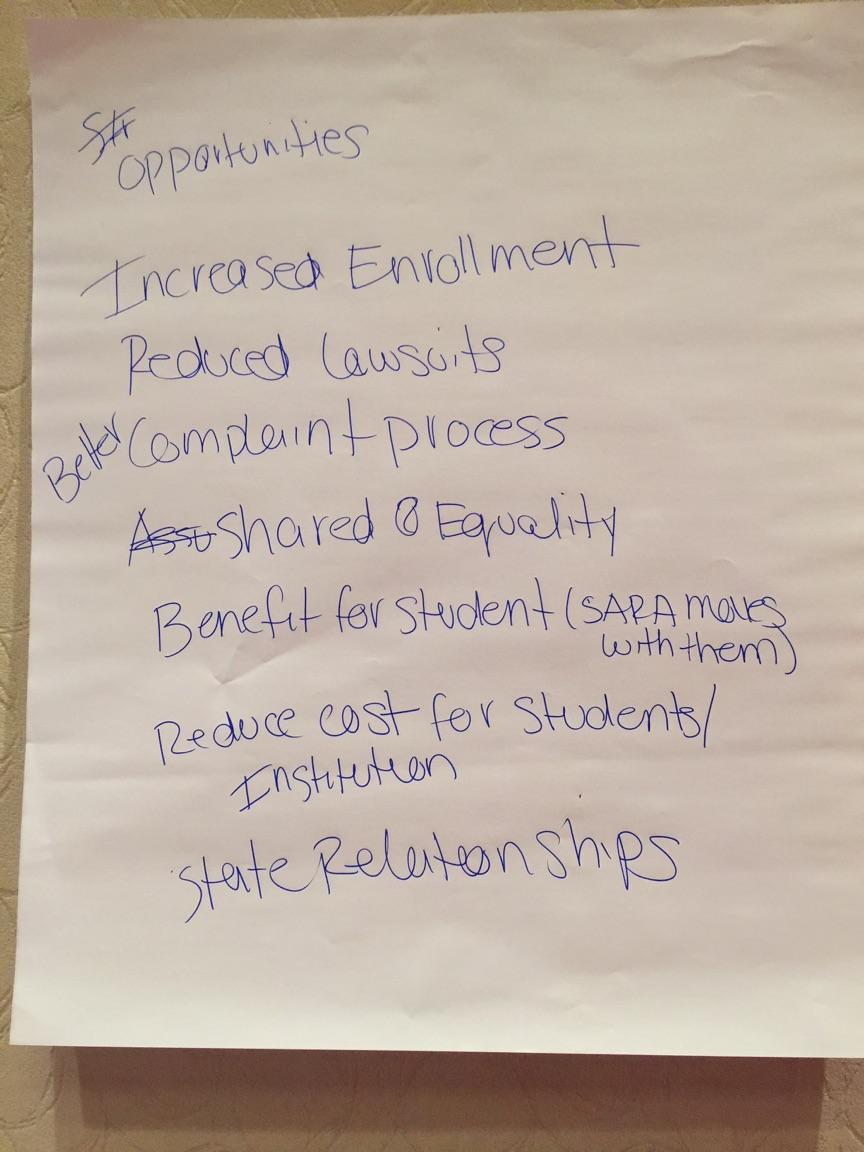 Opportunities
Increased Enrollment
Reduced Lawsuits
Better Complaint process
Shared Equality
Benefit for student (SARA moves
with them)
Reduce cost for students/
Institution
State Relationships